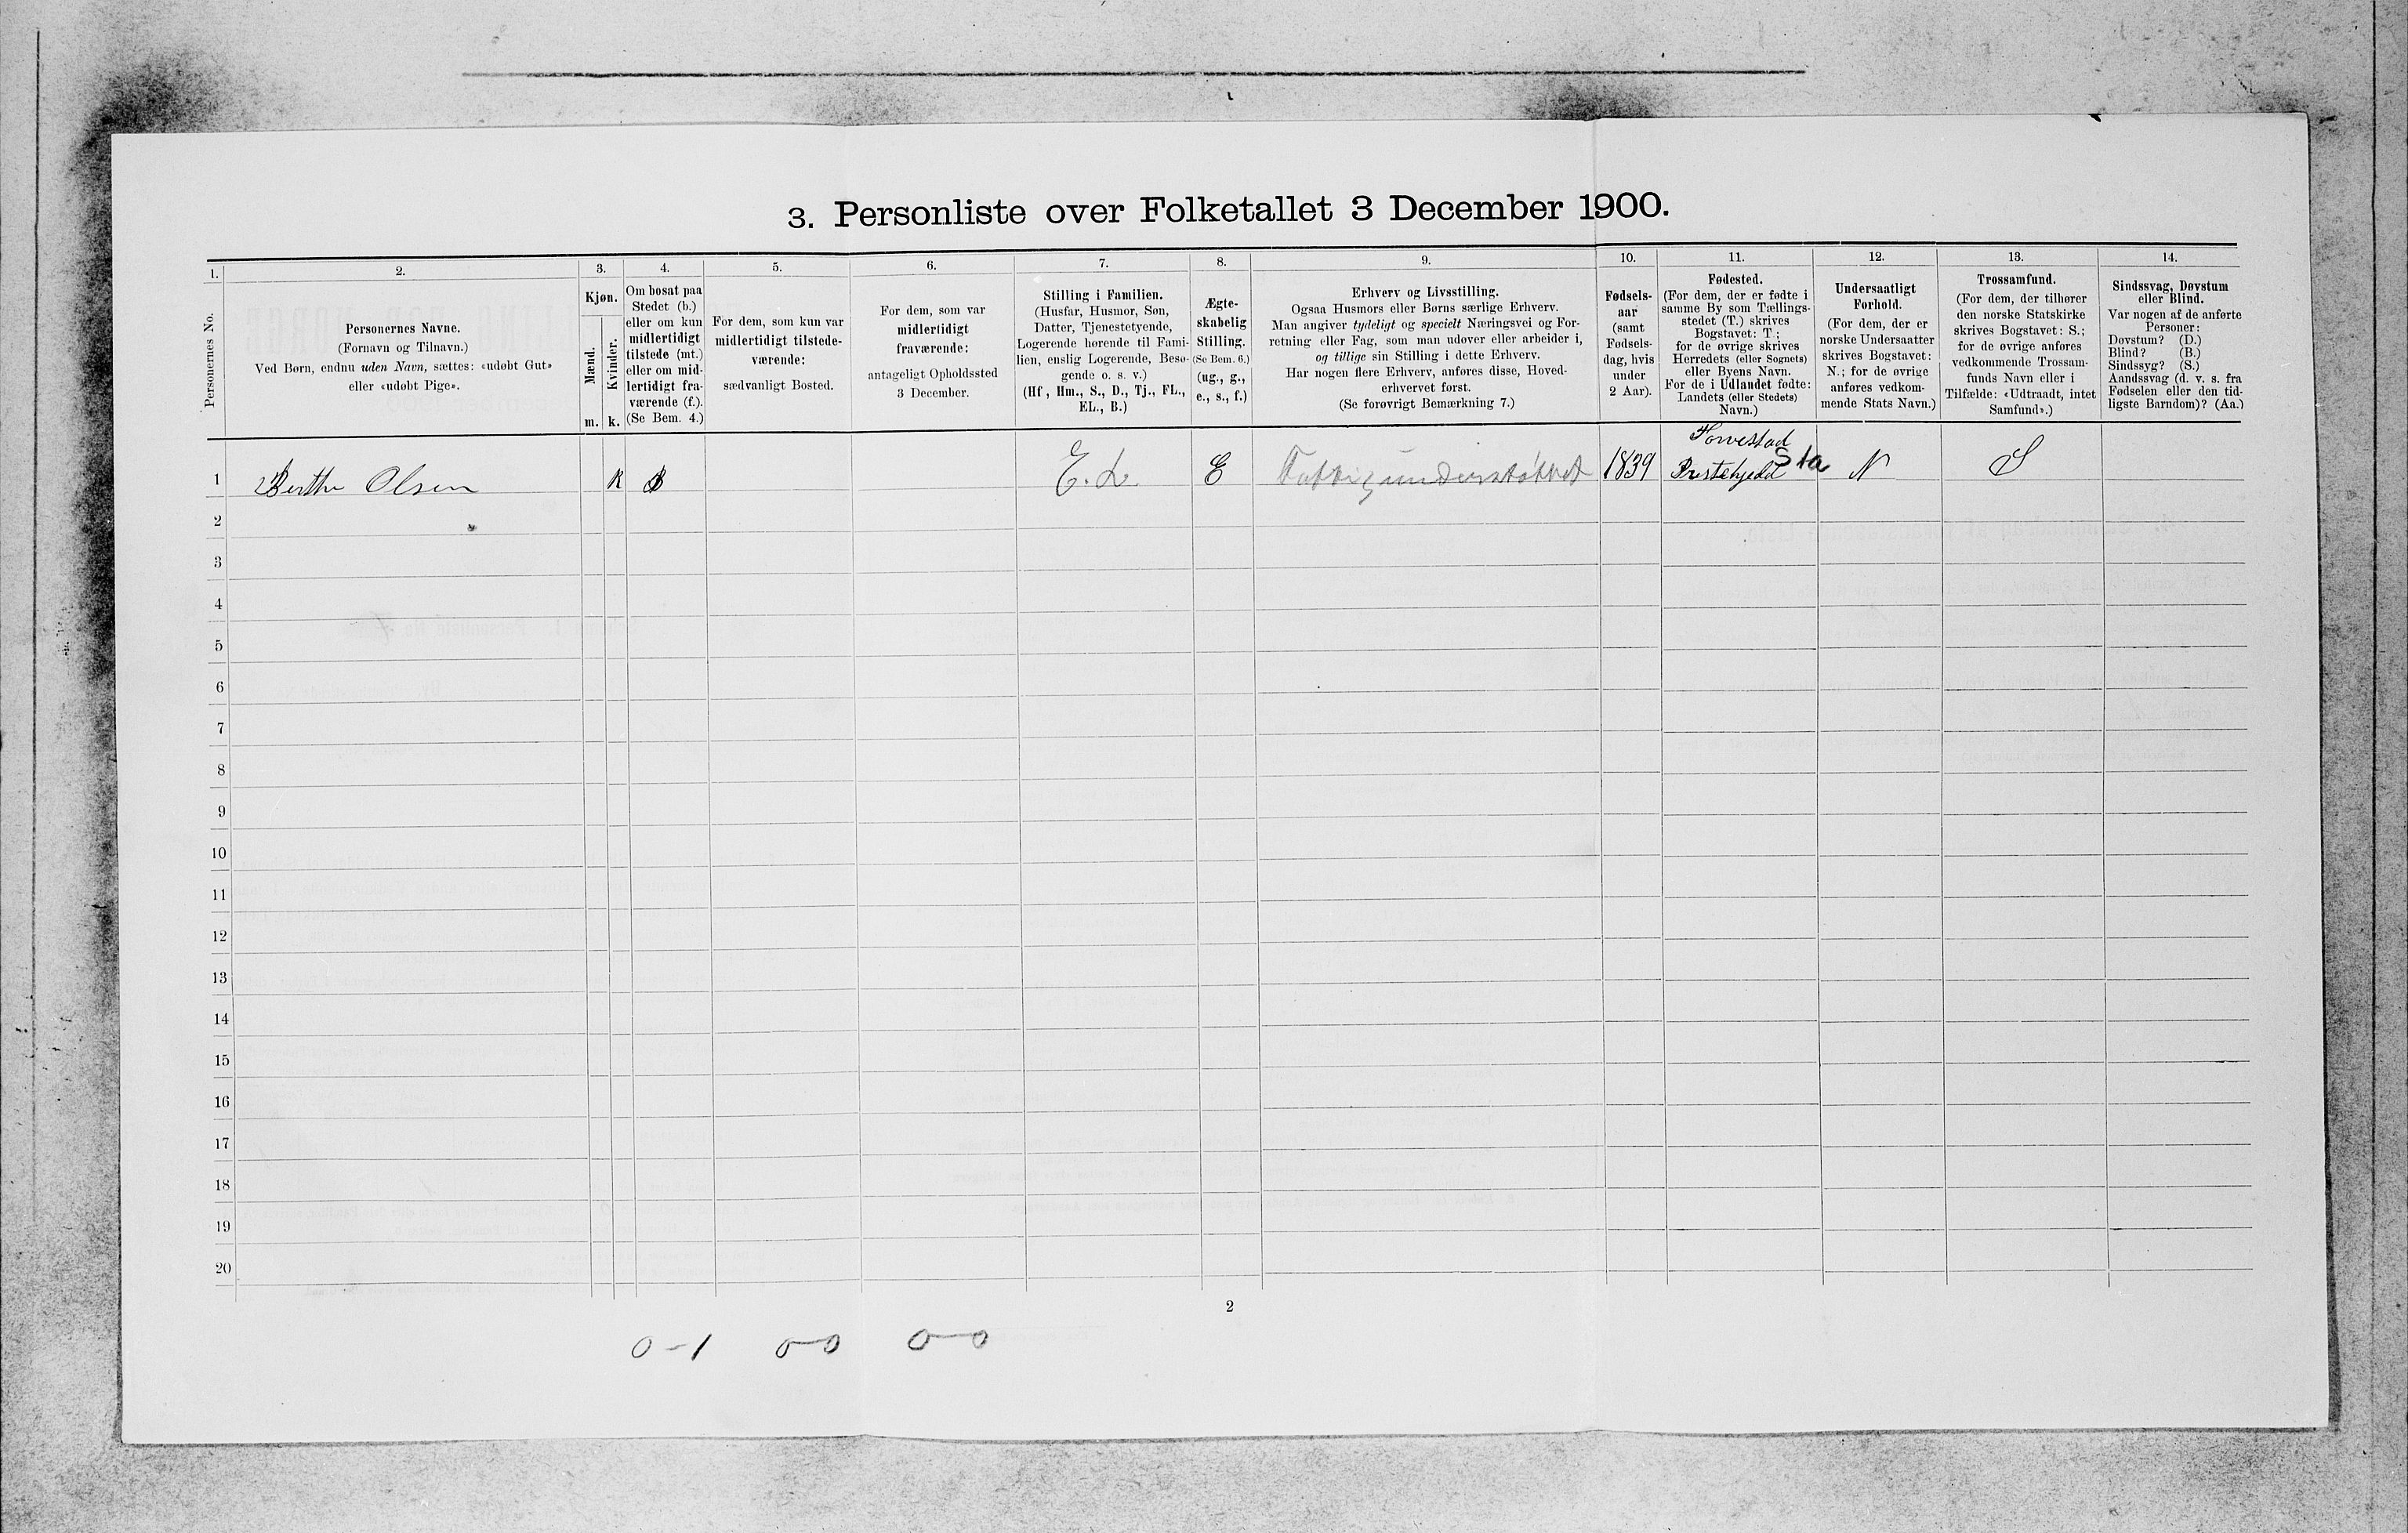 3. Personliste over Folketallet 3 December 1900.
1.
2.
3.
4.
5.
6.
7.
8.
9.
10.
11.
12.
13.
14.
Personernes No.
Personernes Navne.
(Fornavn og Tilnavn.)
Ved Børn, endnu uden Navn, sættes: «udøbt Gut»
eller «udøbt Pige».
Kjøn.
Mænd.
Kvinder.
m. k.
Om bosat paa
Stedet (b.)
eller om kun
midlertidigt
tilstede (mt.)
eller om mid-
lertidigt fra-
værende (f.).
(Se Bem. 4.)
For dem, som kun var
midlertidigt tilstede-
værende:
sædvanligt Bosted.
For dem, som var
midlertidigt
fraværende:
antageligt Opholdssted
3 December.
Stilling i Familien.
(Husfar, Husmor, Søn,
Datter, Tjenestetyende,
Logerende hørende til Fami-
lien, enslig Logerende, Besø-
gende o. s. v.)
(Hf, Hm., S., D., Tj., FL.,
EL., B.)
Ægte-
skabelig
Stilling.
(Se Bem. 6.)
(ug., g.,
e., s., f.)
Erhverv og Livsstilling.
Ogsaa Husmors eller Børns særlige Erhverv.
Man angiver tydeligt og specielt Næringsvei og For-
retning eller Fag, som man udøver eller arbeider i,
og tillige sin Stilling i dette Erhverv.
Har nogen flere Erhverv, anføres disse, Hoved-
erhvervet først.
(Se forøvrigt Bemærkning 7.)
Fødsels-
aar
(samt
Fødsels-
dag, hvis
under
2 Aar).
Fødested.
(For dem, der er fødte i
samme By som Tællings-
stedet (T.) skrives
Bogstavet: T;
for de øvrige skrives
Herredets (eller Sognets)
eller Byens Navn.
For de i Udlandet fødte:
Landets (eller Stedets)
Navn.)
Undersaatligt
Forhold.
(For dem, der er
norske Undersaatter
skrives Bogstavet:
N.; for de øvrige
anføres vedkom-
mende Stats Navn.)
Trossamfund.
(For dem, der tilhører
den norske Statskirke
skrives Bogstavet: S.;
for de øvrige anføres
vedkommende Trossam-
funds Navn eller i
Tilfælde: «Udtraadt, intet
Samfund».)
Sindssvag, Døvstum
eller Blind.
Var nogen af de anførte
Personer:
Døvstum? (D.)
Blind? (B.)
Sindssyg? (S.)
Aandssvag (d. v. s. fra
Fødselen eller den tid-
ligste Barndom)? (Aa.)
Torvestad
1 Berthe Olsen K B E. L. E Fattigunderstøttet 1839 Prestehjeld Sta N S
2
3
4
5
6
7
8
9
10
11
12
13
14
15
16
17
18
19
20
2
0-1 0-0 0-0